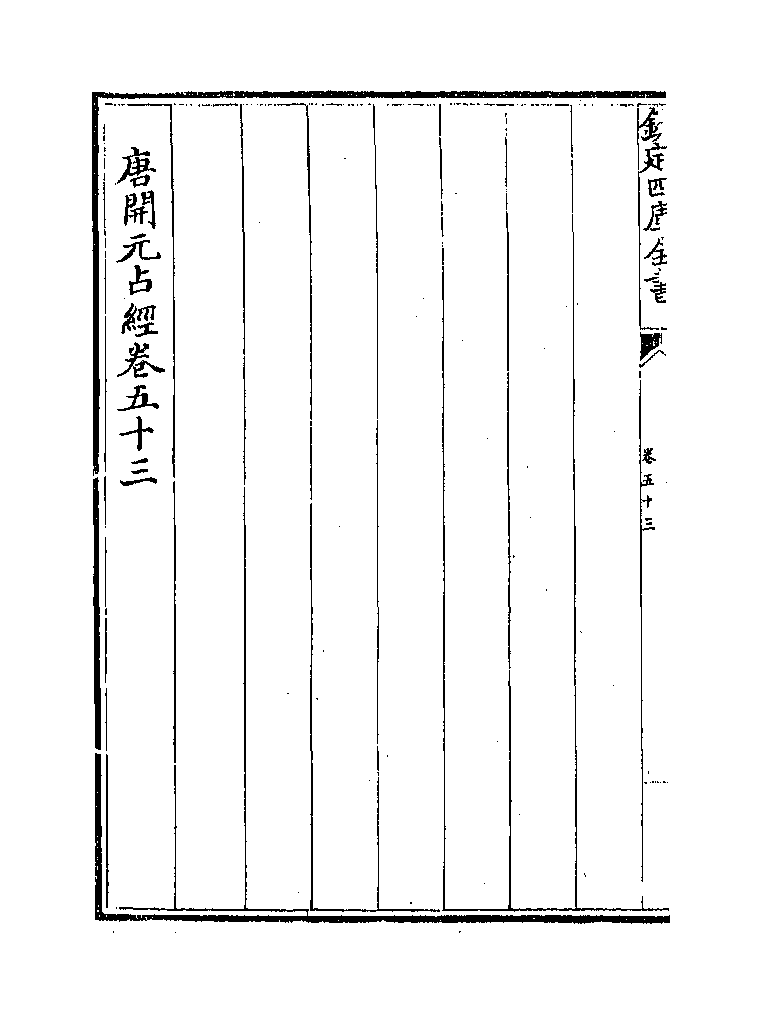 欽定四庫全書
卷五十三
唐開元占經卷五十三